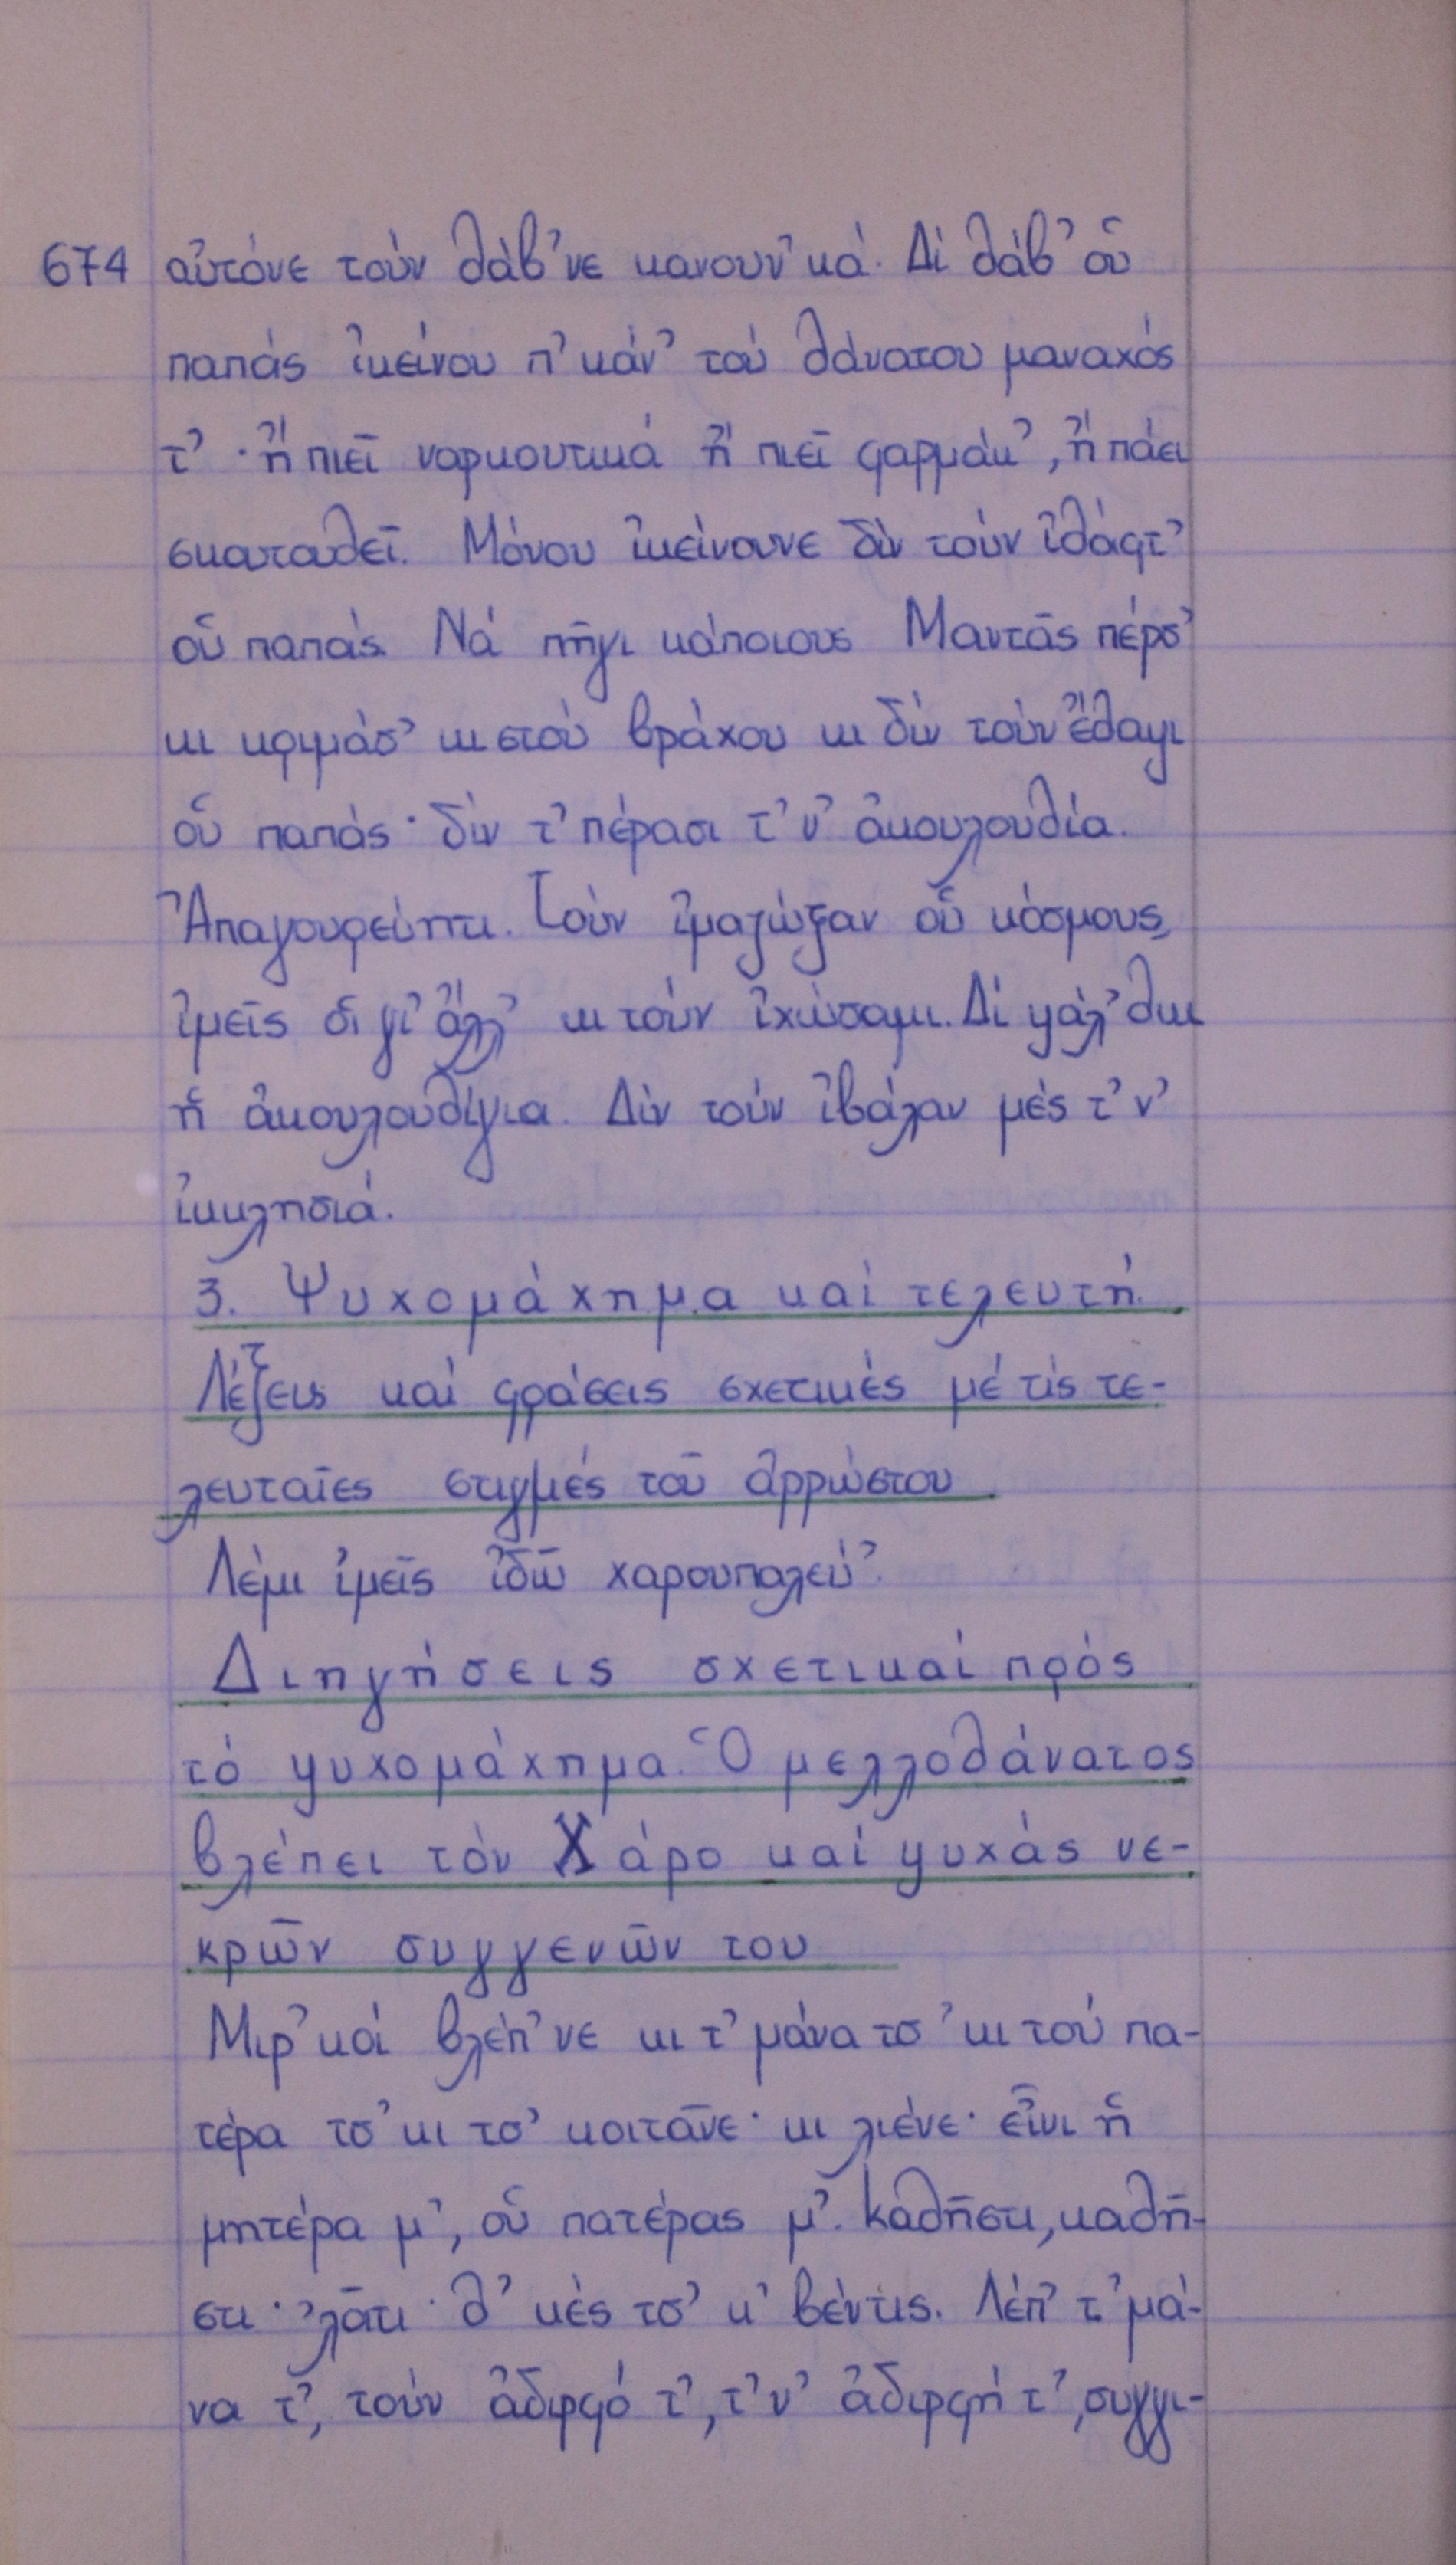 674 αὐτόνε τούν θάβ'νε κανουν'κά. Δί θάβ' οὑ
παπάς ἰκείνου π' κάν' τού θάνατου μαναχός
τ' · ἤ πιεῖ ναρκουτικά ἤ πιεῖ φαρμάκ', ἤ πάει
σκαταθεῖ. Μόνου ἰκείνουνε δέν τούν ἰθάφτ'
οὑ παπάς. Νά πῆγι κάποιους Μαντᾶς πέρσ'
κι κριμάσ'κι στού βράχου κι δίν τούν ἔθαψι
οὑ παπάς · δίν τ' πέρασι τ' ν' ἀκουλουθία.
Ἀπαγουρεύιτι. Τούν ἰμαζώξαν οὑ κόσμους,
ἰμεῖς δι γί' ἄλλ' κι τούν ἰχώσαμι. Δί ψάλ'θκι
ἡ ἀκουλουθίγια. Δίν τούν ἰβάλαν μές τ' ν'
ἰκκλησιά.
3. Ψυχομάχημα καί τελευτή.
Λέξεις καί φράσεις σχετικές μέ τίς τε-
λευταῖες στιγμές τοῦ ἀρρώστου
Λέμι ἰμεῖς ἰδῶ χαρουπαλεύ'.
Διηγήσεις σχετικαί πρός
τό ψυχομάχημα. Ὁ μελλοθάνατος
βλέπει τόν Χάρο καί ψυχάς νε-
κρῶν συγγενῶν του
Μιρ'κοί βλέπ'νε κι τ' μάνα τσ' κι τού πα-
τέρα τσ' κι τσ' κοιτᾶνε · κι λιένε · εἶνι ἡ
μητέρα μ', οὑ πατέρας μ'. Καθῆστι, καθῆ-
στι · 'λᾶτι · θ' κές τσ' κ'βέντις. Λέπ' τ' μά-
να τ', τούν ἀδιρφό τ', τ' ν' ἀδιρφή τ', συγγι-